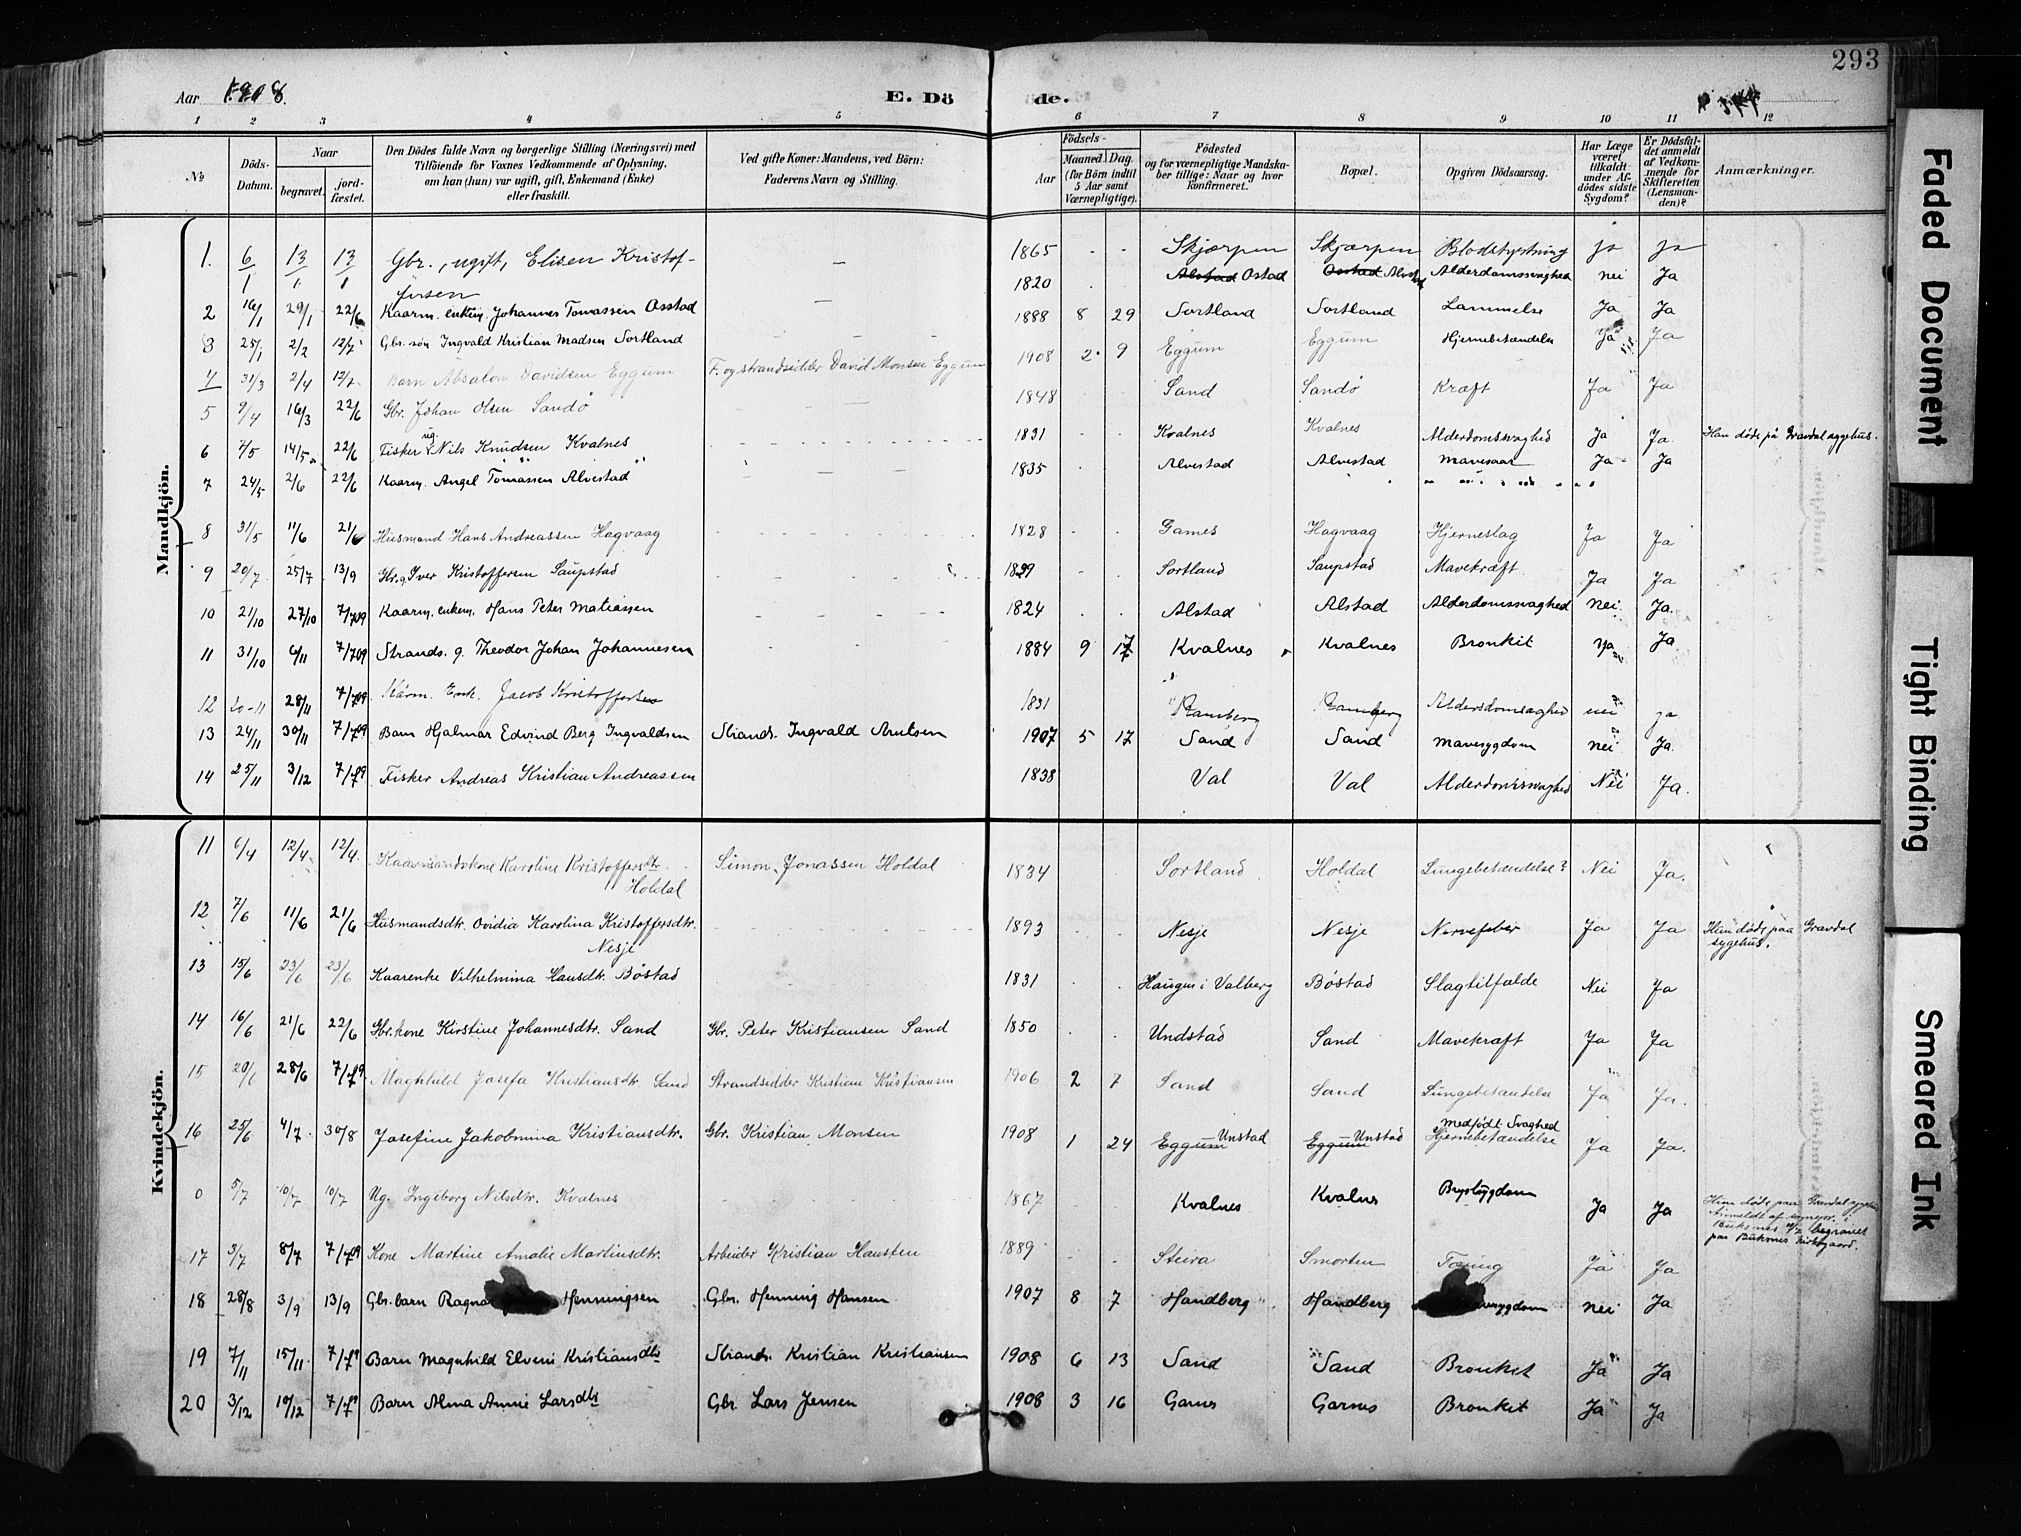 293
Aar 1908.
E. Döde.
1 2 3 4 5 6 7 8 9 10 11 12
No
Döds-Datum.
Naar
begravet.
jord-fæstet.
Den Dödes fulde Navn og borgerlige Stilling (Næringsvei) med
Tilföiende for Voxnes Vedkommende af Oplysning,
om han (hun) var ugift, gift, Enkemand (Enke)
eller fraskilt.
Ved gifte Koner: Mandens, ved Börn:
Faderens Navn og Stilling.
Födsels-
Aar
Maaned. Dag.
(for Börn indtil
5 Aar samt
Værnepligtige).
Födested
og for værnepligtige Mandska-
ber tillige: Naar og hvor
konfirmeret.
Bopæl.
Opgiven Dödsaarsag.
Har Læge
været
tilkaldt
under Af-
dödes sidste
Sygdom?
Er Dödsfal-
det anmeldt
af Vedkom-
mende for
Skifteretten
(Lensman-
den)?
Anmærkninger.
Mandkjön.
1. 6/1 13/1 13/1 Gbr., ugift, Elisen Kristof- — 1865 Skjærpen Skjærpen Blodstyrtning ja ja
fersen
2 16/1 29/1 22/6 Kaarm. enkem. Johannes Tomassen Osstad — 1820 Alstad Ostad Osstad Alstad Alderdomssvaghed nei Ja
3 25/1 2/2 12/7 Gbr. søn Ingvald Kristian Madsen Sortland 1888 8 29 Sortland Sortland Lammelse Ja Ja
4 31/3 2/4 12/7 Barn Absalon Davidsen Eggum F. og strandsidder David Monsen Eggum 1908 2 9 Eggum Eggum Hjernebetændelse Ja Ja
5 9/4 16/3 22/6 Gbr. Johan Olsen Sandö 1848 Sand Sandö Kræft Ja Ja
6 4/5 14/5 22/6 Fisker ug. Nils Knudsen Kvalnes 1831 Kvalnes Kvalnes Alderdomssvaghed Ja Ja Han døde på Gravdal sygehus.
7 24/5 2/6 22/6 Kaarm. Angel Tomassen Alvestad 1835 Alvestad Alvestad Mavesaar Ja Ja
8 31/5 11/6 21/6 Husmand Hans Andreassen Hagvaag 1828 Garnes Hagvaag Hjerneslag Ja Ja
9 20/7 25/7 13/9 Gbr. g. Iver Kristoffersen Saupstad 1829 Sortland Saupstad Mavekræft Ja Ja
10 21/10 27/10 7/7 09 Kaarm. enkem. Hans Peter Matiassen 1824 Alstad Alstad Alderdomssvaghed Nei Ja.
11 31/10 6/11 7/7 09 Strands. g. Theodor Johan Johannesen 1884 9 17 Kvalnes Kvalnes Bronkit Ja Ja
12 20-11 28/11 7/7 09 Kårm. Enk. Jacob Kristoffersen 1831 Ramberg Ramberg Aldersdomsvaghed nei ja
13 24/11 30/11 7/7 09 Barn Hjalmar Edvind Berg Ingvaldsen Strands. Ingvald Arntsen 1907 5 17 Sand Sand Mavesygdom Nei Ja
14 25/11 3/12 7/7 09 Fisker Andreas Kristian Andreassen 1838 Val Val Alderdomssvaghed Nei Ja.
Kvindekjön.
11 6/4 12/4 12/4 Kaarmandskone Karoline Kristoffersdtr. Simon Jonassen Holdal 1834 Sortland Holdal Lungebetændelse? Nei Ja.
Holdal
12 7/6 11/6 21/6 Husmandsdtr. Ovidia Karolina Kristoffersdtr. 1893 Nesje Nesje Nervefeber Ja Ja Hun døde paa Gravdal
Nesje sygehus.
13 15/6 23/6 23/6 Kaarenke Vilhelmina Hansdtr. Böstad 1831 Haugen i Valberg Böstad Slagtilfælde Nei Ja
14 16/6 21/6 22/6 Gbr. kone Kirstine Johannesdtr. Sand Gbr. Peter Kristiansen Sand 1850 Undstad Sand Mavekræft Ja Ja
15 20/6 28/6 7/7 09 Maghild Josefa Kristiansdtr. Sand Strandsidder Kristian Kristiansen 1906 2 7 Sand Sand Lungebetændelse Ja Ja.
16 25/6 4/7 30/8 Josefine Jakobmina Kristiansdtr. Gbr. Kristian Monsen 1908 1 24 Eggum Unstad Eggum Unstad Medfödt Svaghed Hjernebetændelse Ja Ja.
0 5/7 10/7 10/7 Ug. Ingeborg Nilsdtr. Kvalnes 1867 Kvalnes Kvalnes Brystsygdom Ja Ja Hun døde paa Gravdal sygehus
Anmeldt af sognepr. i
Buksnes begravet
paa Buksnes kirkegaard.
17 3/7 8/7 7/7 09 Kone Martine Amalie Martinsdtr. Arbeider Kristian Hansten 1889 Steira Smorten Tæring Ja Ja
18 28/8 3/9 13/9 Gbr. barn Ragna Henningsen Gbr. Henning Hansen 1907 8 7 Handberg Handberg sygdom Nei Ja
19 7/11 15/11 7/7 09 Barn Magnhild Elveni Kristiansdtr Strands. Kristian Kristiansen 1908 6 13 Sand Sand Bronket Ja Ja
20 3/12 10/12 7/7 09 Barn Alma Annie Larsdtr Gbr. Lars Jensen 1908 3 16 Garnes Garnes Bronkit Ja Ja
Faded Document
Tight Binding
Smeared Ink